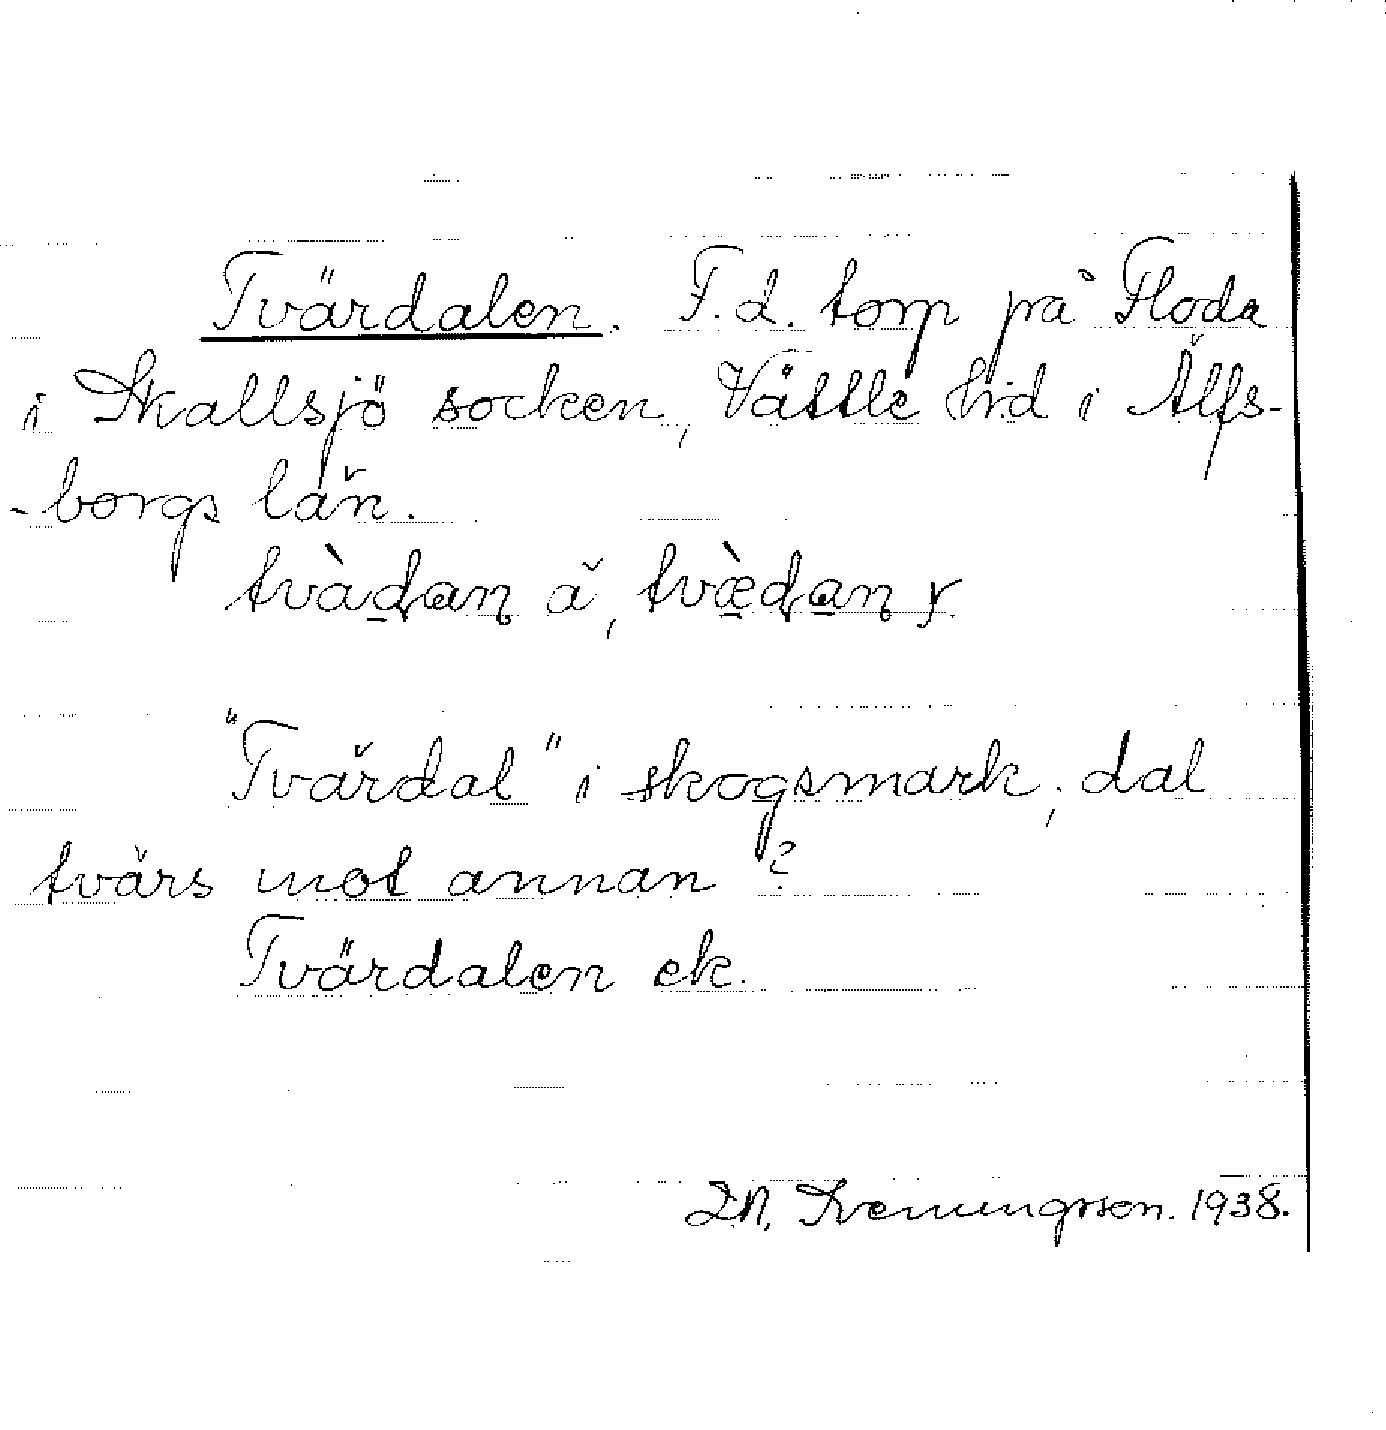 Tvärdalen. F.d. torp på Floda
i Skallsjö socken, Vättle hrd i Älfs-
-borgs län.
tvàdan ä, tvæ̀dan y
"Tvärdal" i skogsmark; dal
tvärs mot annan?
Tvärdalen ek.
Sveningsson. 1938.